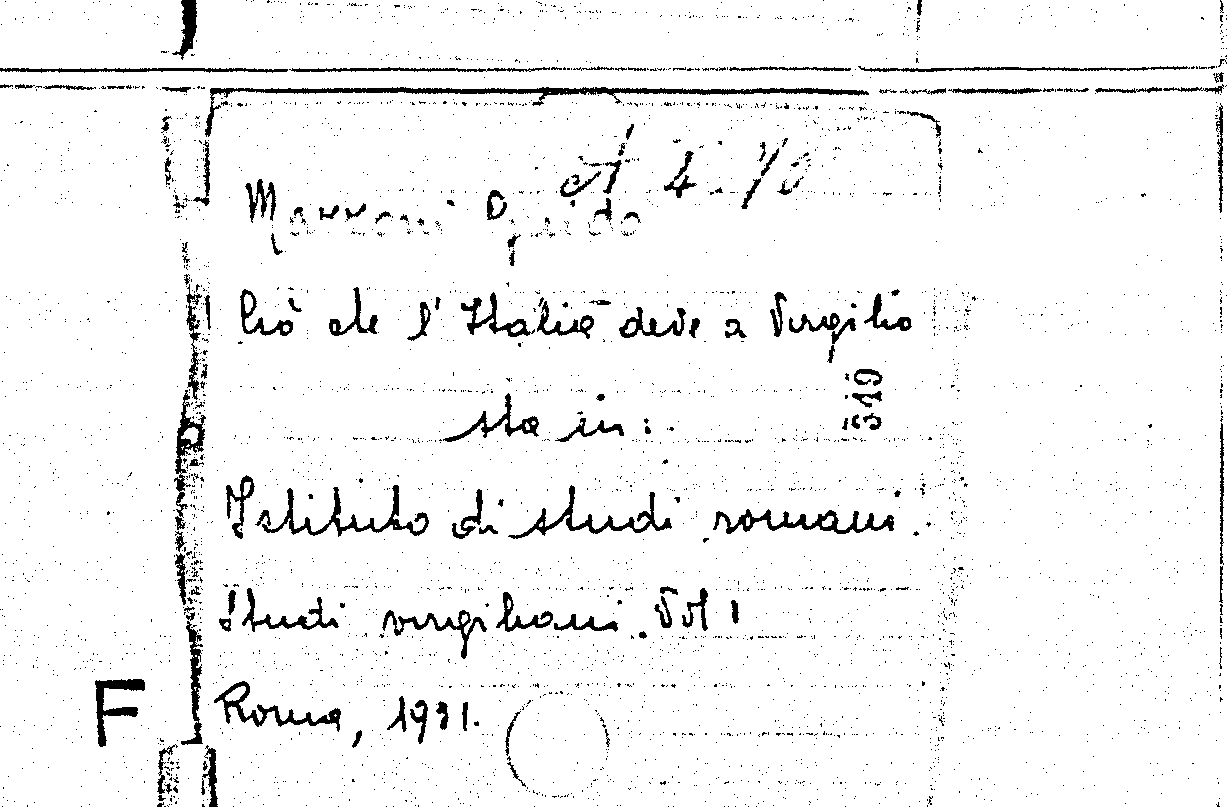 A 4. 70
Mazzoni Guido
Ciò che l'Italia deve a Virgilio
349
sta in:
Istituto di studi romani.
Studi virgiliani. Vol I
F
Roma, 1931.